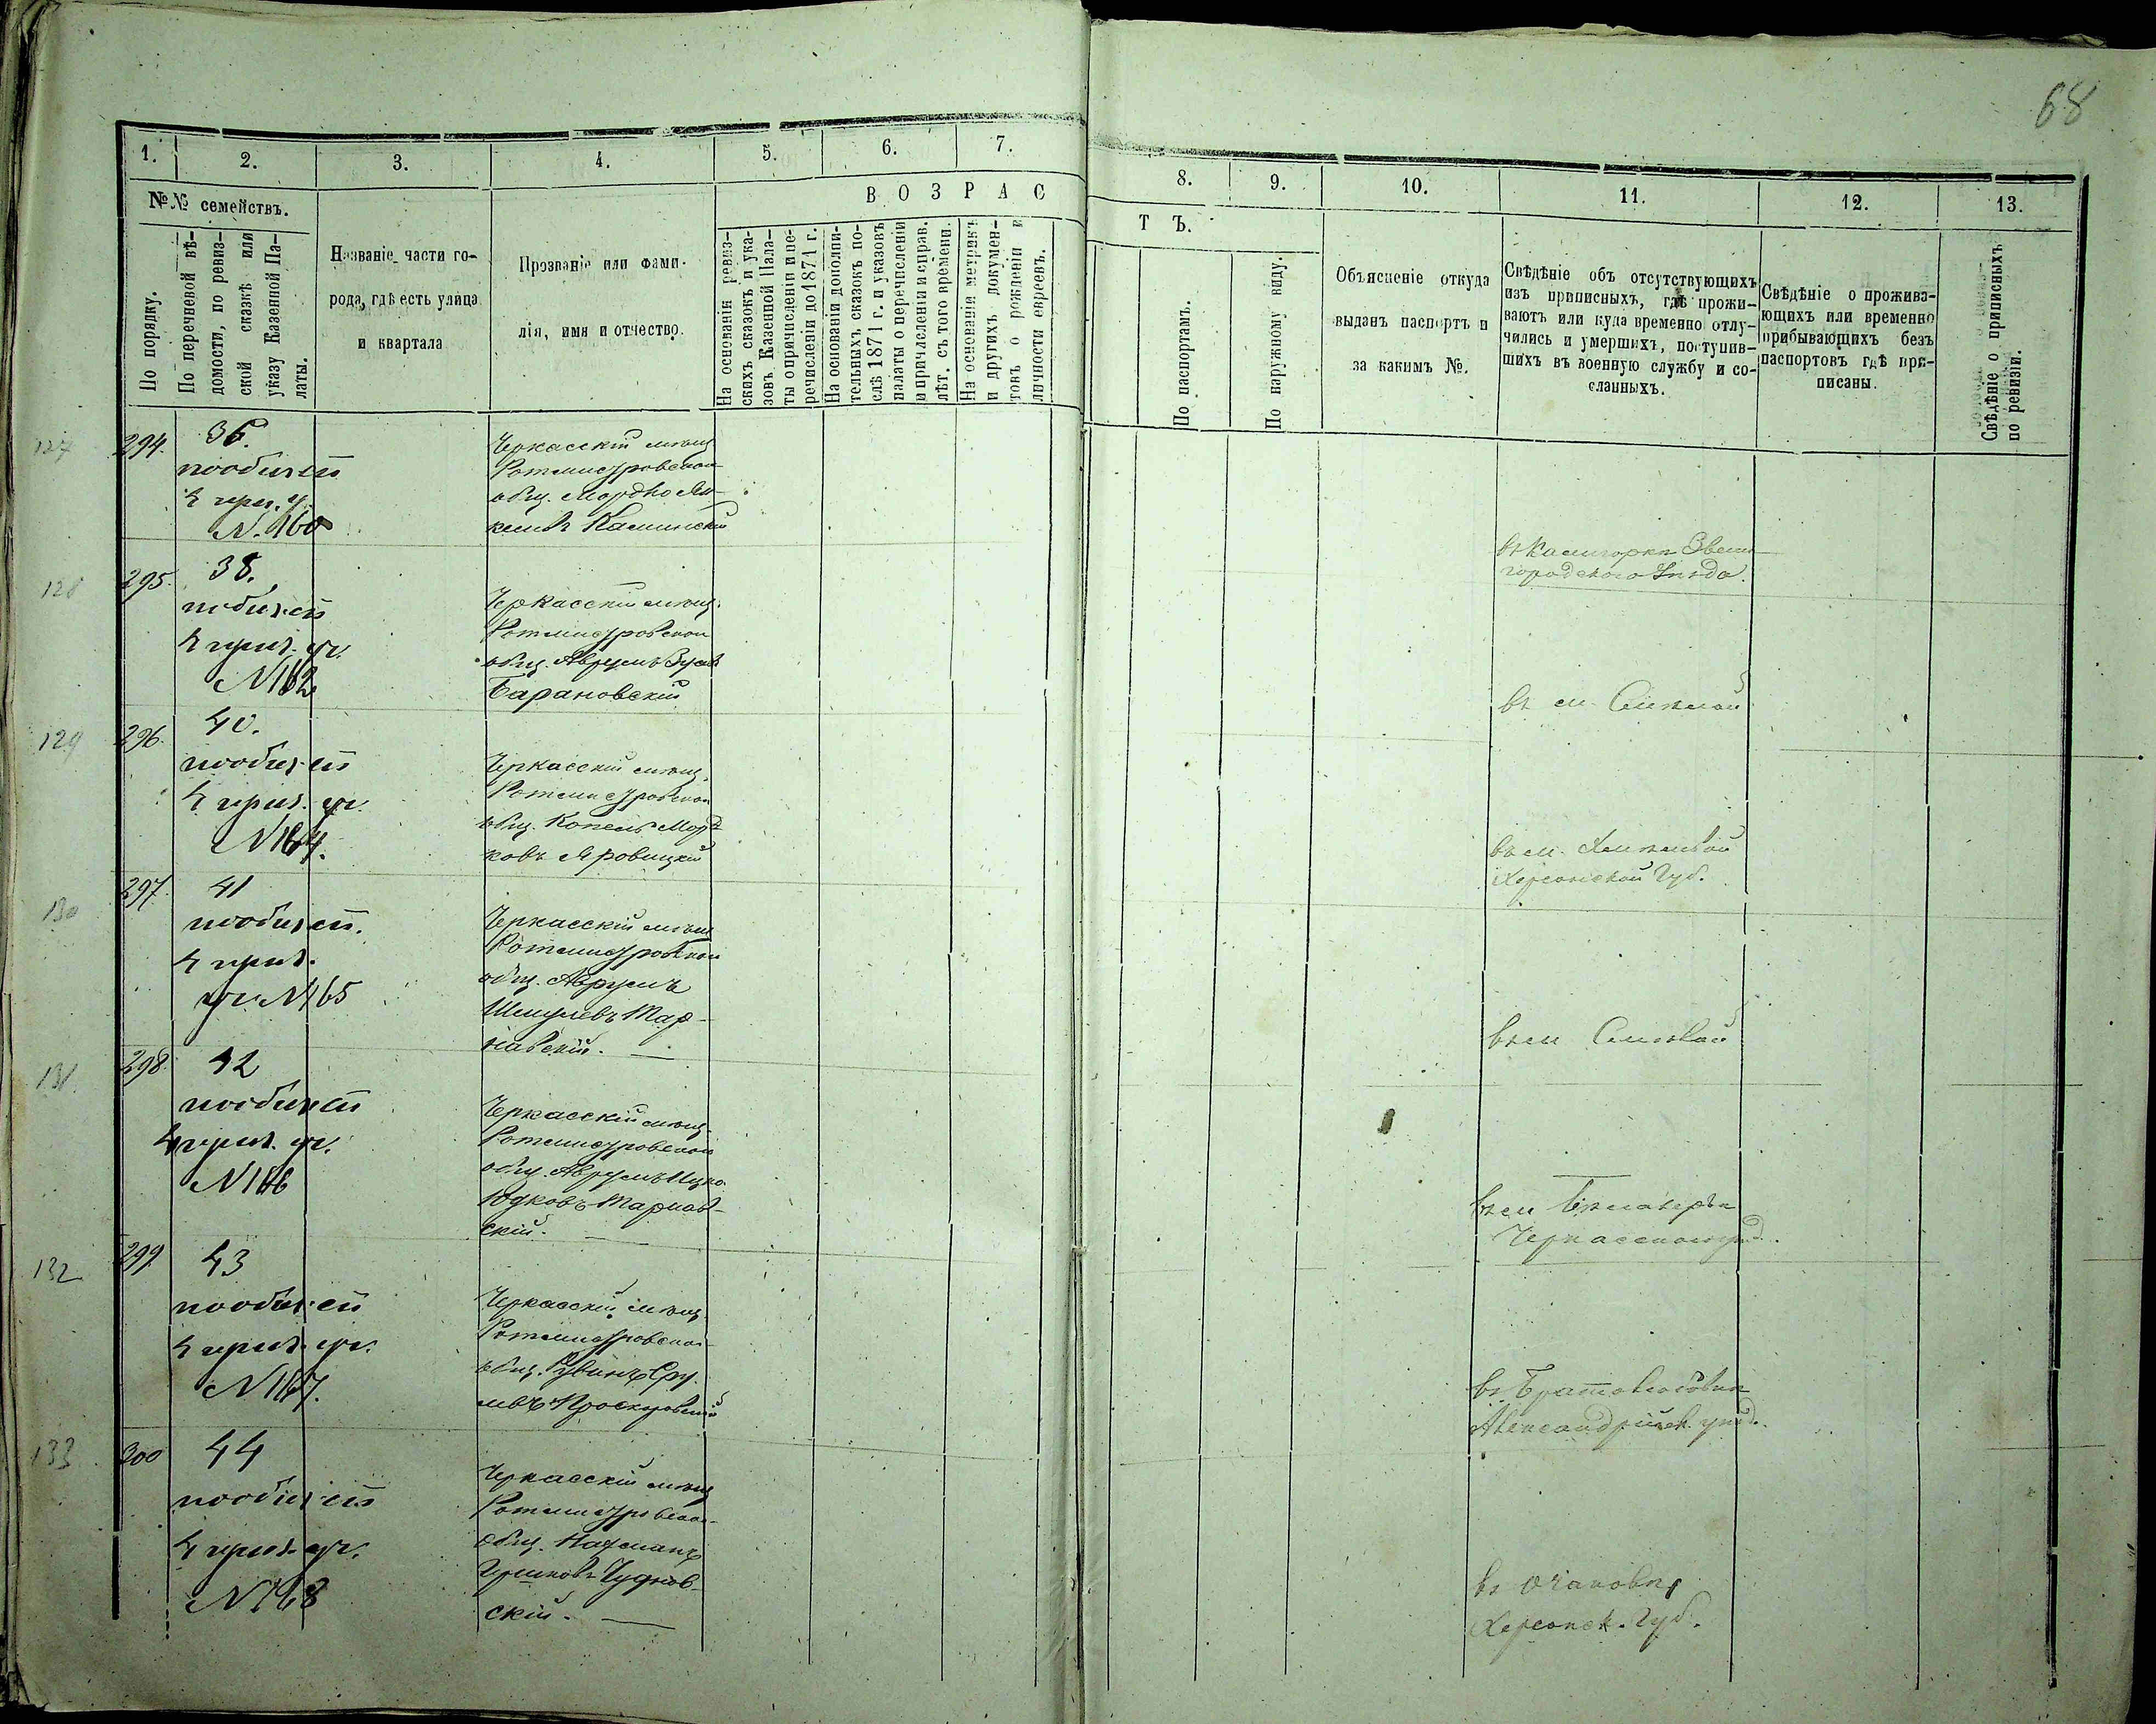 68
1. 2. 3. 4. 5. 6. 7. 8. 9. 10. 11. 12. 13.
№№ семействъ.
По порядку.
По перечневой вѣ-
домости, по ревиз-
ской сказкѣ или
указу Казенной Па-
латы.
Названіе части го-
рода, гдѣ есть улица
и квартала
Прозваніе или фами-
лія, имя и отчество.
ВОЗРАСТЪ.
На основаніи ревиз-
скихъ сказокъ и ука-
зовъ Казенной Пала-
ты опричисленіи и пе-
речисленіи до 1871 г.
На основаніи дополни-
тельныхъ сказокъ по-
слѣ 1871 г. и указовъ
палаты о перечисленіи
и причисленіи и справ.
лѣт. съ того времени.
На основаніи метрикъ
и другихъ докумен-
товъ о рожденіи и
личности евреевъ.
По паспортамъ.
По наружному виду.
Объясненіе откуда
выданъ паспортъ и
за какимъ №.
Свѣдѣніе объ отсутствующихъ
изъ приписныхъ, гдѣ прожи-
ваютъ или куда временно отлу-
чились и умершихъ, поступив-
шихъ въ военную службу и со-
сланныхъ.
Свѣдѣніе о прожива-
ющихъ или временно
прибывающихъ безъ
паспортовъ гдѣ при-
писаны.
Свѣдѣніе о приписныхъ
по ревизіи.
127 294. 36.
4 приз. уч.
N. 160
Черкасскій мѣщ.
Ротмистровской
общ. Мордко Ян-
келевъ Каминскій
городского Уѣзда.
128 295. 38.
4 приз. уч.
N 162
Черкасскій мѣщ.
Ротмистровской
общ. Аврумъ Зусевъ
Барановскій
въ м. Смѣлой
129 296. 40.
4 приз. уч.
N 164.
Черкасскій мѣщ.
Ротмистровской
общ. Копель Морд
ковъ Яровицкій
въ м.
Херсонской Губ.
130 297. 41
4 приз.
уч. N 165
Черкасскій мѣщ
Ротмистровской
общ. Аврумъ
Шмулевъ Тар-
навскій.
въ м Смѣлой
131 298. 42
4 приз. уч.
N 166
Черкасскій мѣщ.
Ротмистровской
общ. Аврумъ Ицко
Юдковъ Тарнав-
скій.
въ м
Черкасскаго уѣзд.
132 299. 43
4 приз. уч.
N 167.
Черкасскій мѣщ
Ротмистровской
общ. Рувинъ Сру-
левъ Проскуровскій
въ
Александрійск. уѣзд.
133 300 44
4 приз. уч.
N 168
Черкасскій мѣщ
Ротмистровской
общ. Нахманъ
Гершковъ Чуднов-
скій.
въ
Херсонск. Губ.